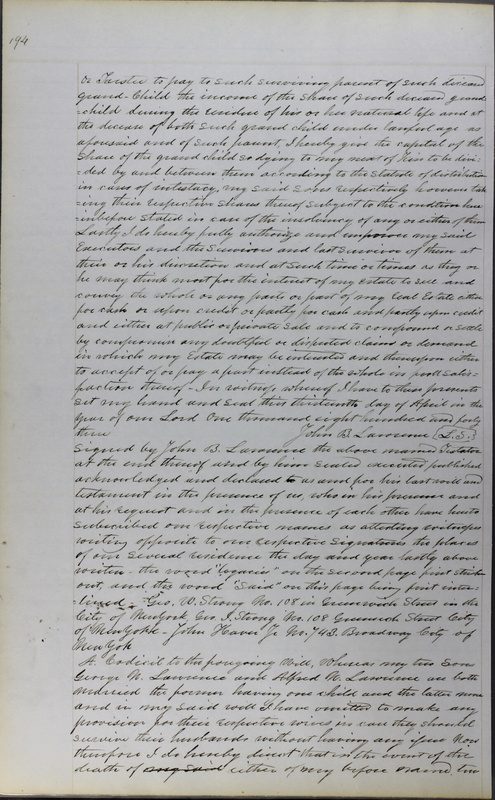 194
or Trustee to pay to such surviving parent of such deceased
grand-Child the income of the share of such deceased grand
=child during the residue of his or her natural life and at
the decease of both such grand child under lawful age as
aforesaid and of such parent, I hereby give the capital of the
share of the grand child so dying to my next of Kin to be divi-
=ded by and between them according to the Statute of distribution
in cases of intestacy, my said Sons respectively however tak
=ing their respective shares thereof subject to the condition here
=inbefore stated in case of the insolvency of any or either of them
Lastly I do hereby fully authorize and empower my Said
Executors and the Survivors and last survivor of them at
their or his discretion and at such time or times as they or
he may think most for the interest of my estate to sell and
convey the whole or any parts or part of my real Estate either
for cash or upon credit or partly for cash and partly upon credit
and either at public or private Sale and to compound or settle
by compromise any doubtful or disputed claims or demand
in which my Estate may be interested and thereupon either
to accept of or pay a part instead of the whole in full Satis=
=faction thereof - In witness whereof I have to these presents
set my hand and seal this thirteenth day of April in the
year of our Lord One thousand eight hundred and forty
three John B. Lawrence (L.S.)
Signed by John B. Lawrence the above named Testator
at the end thereof and by him sealed executed published
acknowledged and declared to as and for his last will and
testament in the presence of us, who in his presence and
at his request and in the presence of each other have hereto
subscribed our respective names as attesting witnesses
writing opposite to our respective Signatures the places
of our several residence the day and year lastly above
written - the word "legacies" on the second page first struck
out, and the word "Said" on this page being first inter
=lined - Geo. W. Strong No. 108 in Greenwich Street in the
City of New York, Geo. T. Strong No. 108 Greenwich Street City
of New York - John Jr No. 743. Broadway City of
New York
A Codicil to the foregoing Will, Whereas my two Sons
George N. Lawrence and Alfred N. Lawrence are both
married the former having one child and the latter none
and in my said will I have omitted to make any
provision for their respective wives in case they should
survive their husbands without leaving any issue Now
therefore I do hereby direct that in the event of the
death of my said either of my before named two